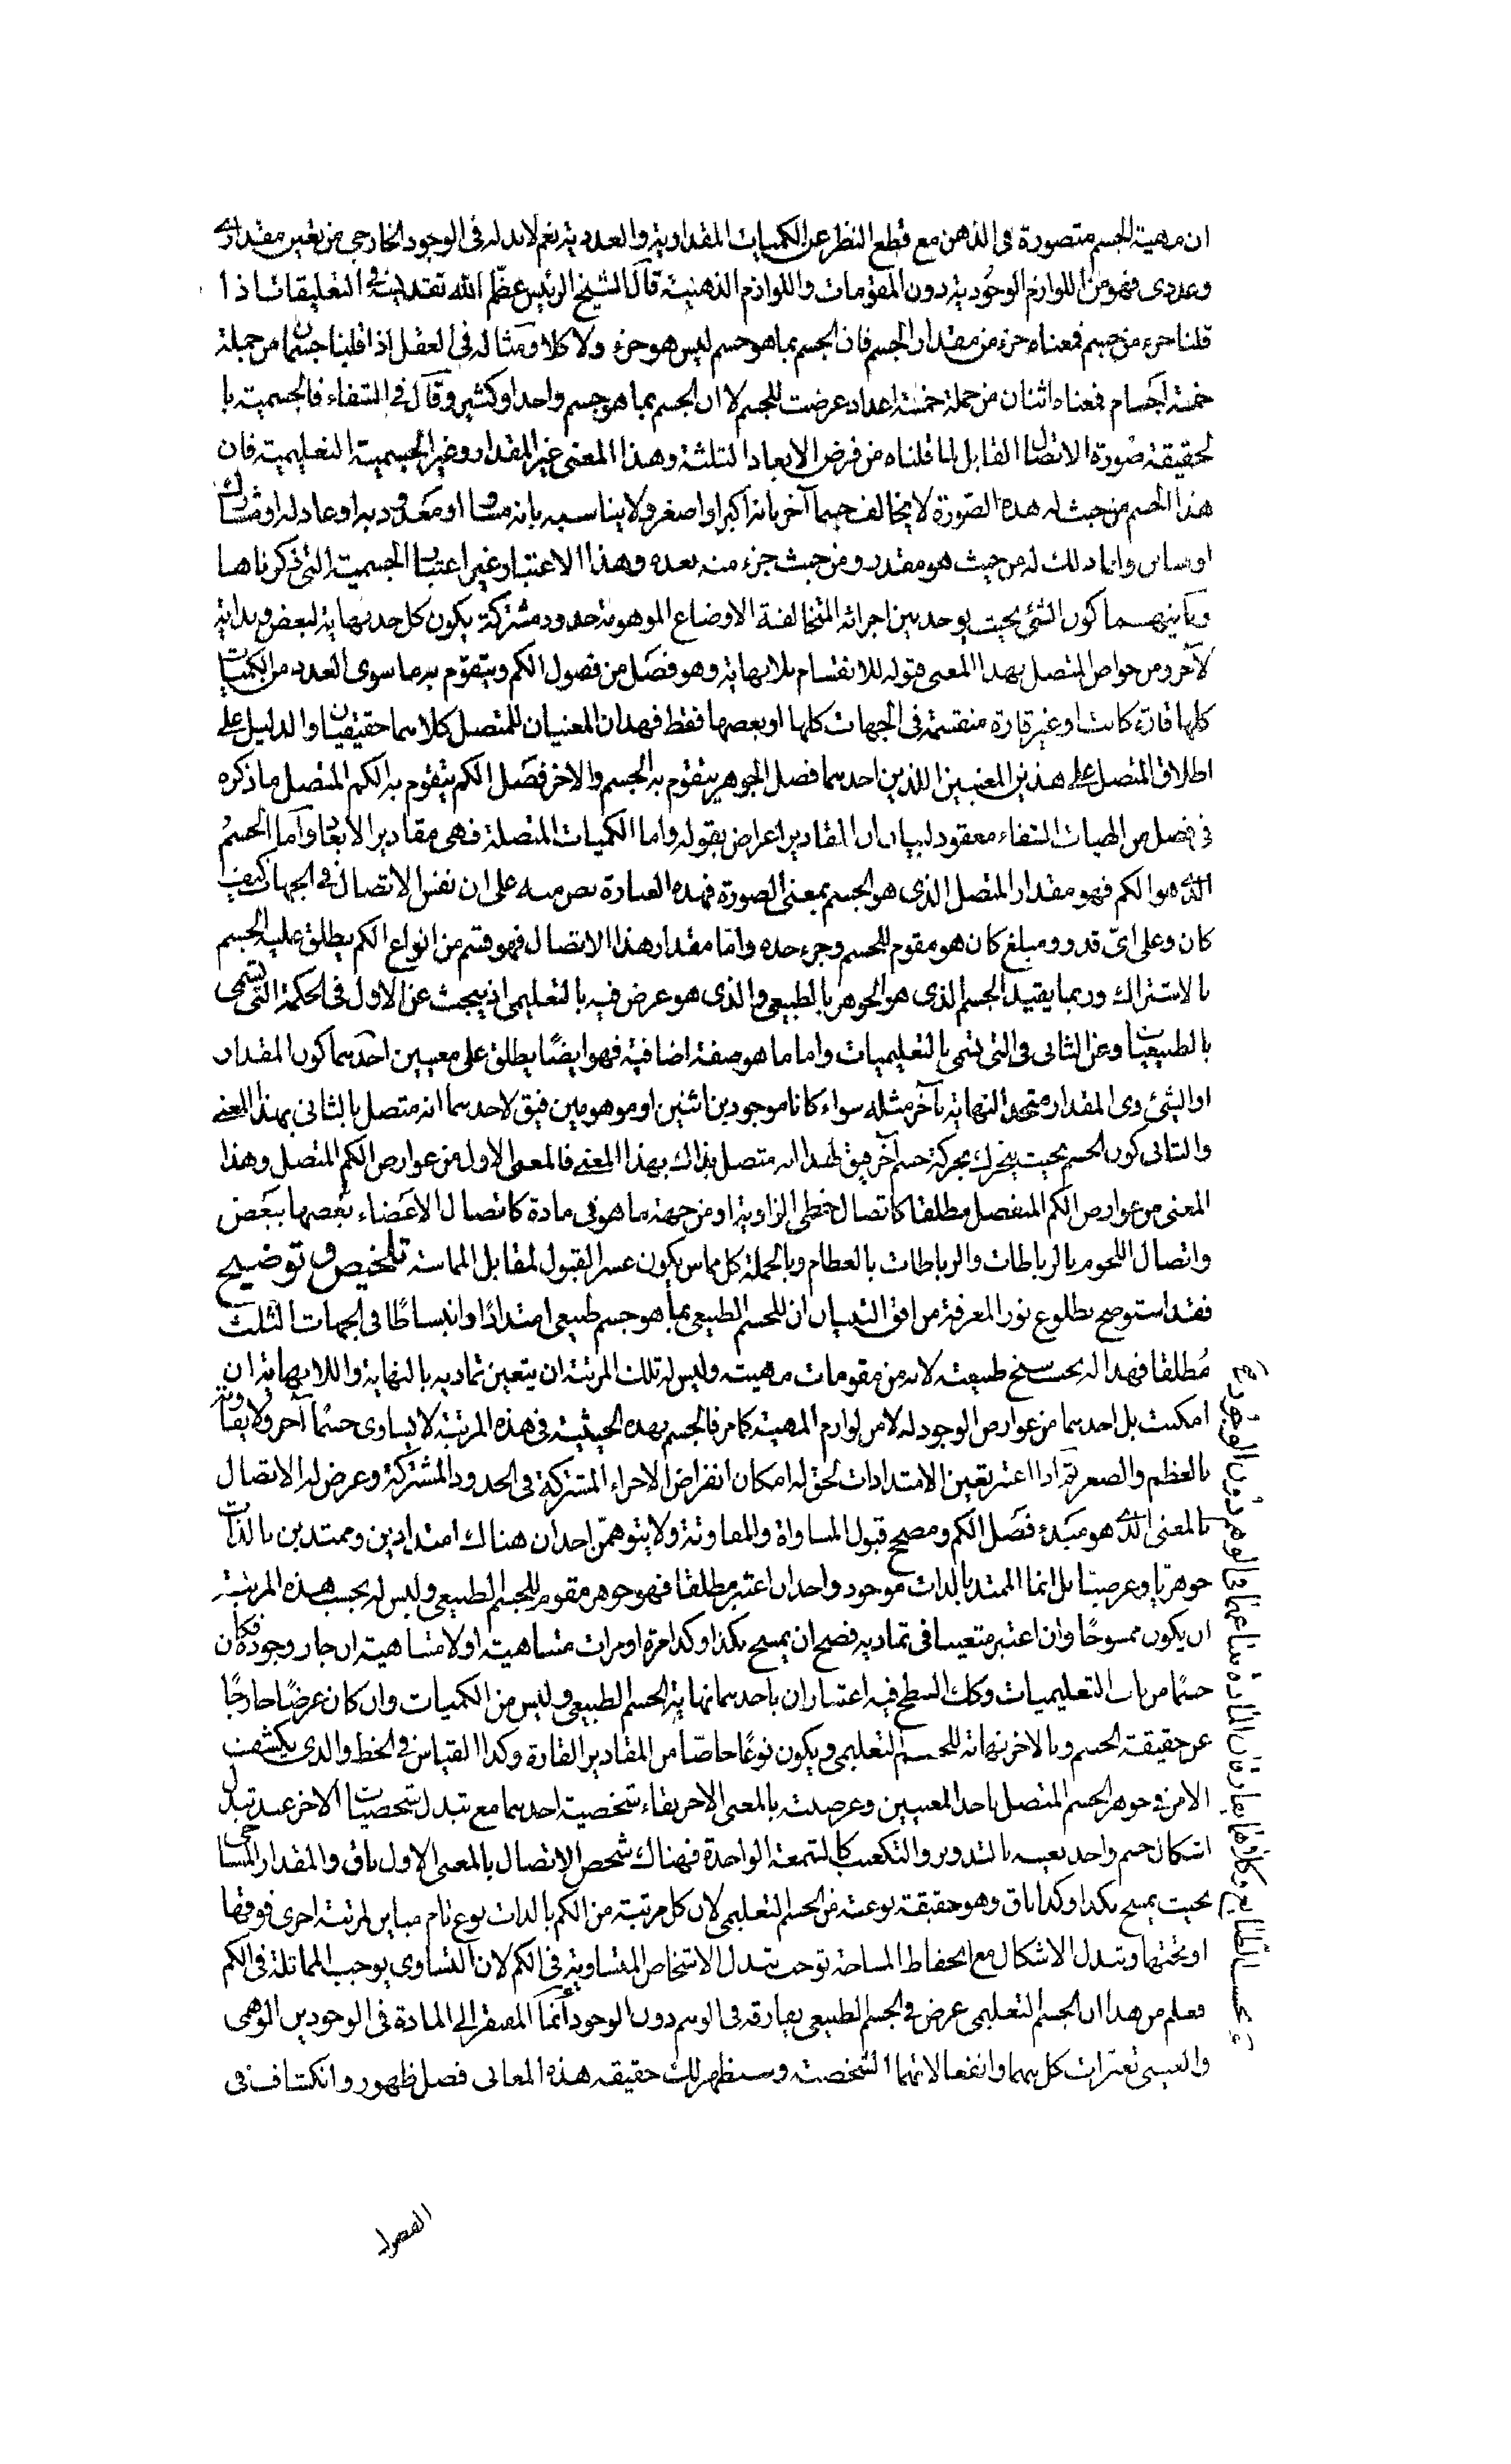 ان مهية الجسم متصورة فى الذهن مع قطع النظر عن الكميات المقدارية والعددية نعم لابد له فى الوجود الخارجى من تعين مقدارى
وعددى فهو من اللوازم الوجودية دون المقومات واللوازم الذهنية قال الشيخ الرئيس عظم الله تقديسه فى التعليقات اذا
قلنا جزء من جسم فمعناه جزء من مقدار الجسم فان الجسم بما هو جسم ليس هو جزء ولا كلا ومثاله فى العقل اذا قلنا جسمان من جملة
خمسة اجسام فمعناه اثنان من جملة خمسة اعداد عرضت للجسم لا ان الجسم بما هو جسم واحد او كثير وقال فى الشفاء فالجسمية با
لحقيقة صورة الاتصال القابل لما قلناه من فرض الابعاد الثلثة وهذا المعنى غير المقدار وغير الجسمية التعليمية فان
هذا الجسم من حيث له هذه الصورة لا يخالف جسما آخر بانه اكبر او اصغر ولا يناسبه بانه مساو او معدود به او عاد له او مشارك
او مباين وانما ذلك له من حيث هو مقدر ومن حيث جزء منه يعده وهذا الاعتبار غير اعتبار الجسمية التى ذكرناها
وثانيهما كون الشئ بحيث يوجد بين اجزائه المتخالفة الاوضاع الموهومة حدود مشتركة يكون كل حد نهاية لبعض وبداية
لآخر ومن خواص المتصل بهذا المعنى قبوله للانقسام بلا نهاية وهو فصل من فصول الكم ويتقوم به ما سوى العدد من الكميات
كلها قارة كانت او غير قارة منقسمة فى الجهات كلها او بعضها فقط فهذان المعنيان للمتصل كلاهما حقيقيان والدليل على
اطلاق المتصل على هذين المعنيين اللذين احدهما فصل الجوهر يتقوم به الجسم والاخر فصل الكم يتقوم به الكم المتصل ما ذكره
فى فصل من الهيات الشفاء معقود لبيان ان المقادير اعراض بقوله واما الكميات المتصلة فهى مقادير الابعاد واما الجسم
الذى هو الكم فهو مقدار المتصل الذى هو الجسم بمعنى الصورة فهذه العبارة نص منه على ان نفس الاتصال فى الجهات كيف
كان وعلى اى قدر ومبلغ كان هو مقوم للجسم وجزء حده واما مقدار هذا الاتصال فهو قسم من انواع الكم يطلق عليه الجسم
بالاشتراك وربما يقيد الجسم الذى هو الجوهر بالطبيعى والذى هو عرض فيه بالتعليمى اذ يبحث عن الاول فى الحكمة التى تسمى
بالطبيعيات وعن الثانى فى التى تسمى بالتعليميات واما ما هو صفة اضافية فهو ايضًا يطلق على معنيين احدهما كون المقدار
او الشئ ذى المقدار متحد النهاية بآخر مثله سواء كانا موجودين اثنين او موهومين فيق لاحدهما انه متصل بالثانى بهذا المعنى
والثانى كون الجسم بحيث يتحرك بحركة جسم آخر فيق لهذا انه متصل بذاك بهذا المعنى فالمعنى الاول من عوارض الكم المتصل وهذا
المعنى من عوارض الكم المنفصل مطلقا كاتصال خطى الزاوية او من جهة ما هو فى مادة كاتصال الاعضاء بعضها ببعض
واتصال اللحوم بالرباطات والرباطات بالعظام وبالجملة كل مماس يكون عسر القبول لمقابل المماسة تلخيص و توضيح
فقد استوضح بطلوع نور المعرفة من افق التبيان ان للجسم الطبيعى بما هو جسم طبيعى امتدادًا وانبساطًا فى الجهات الثلث
مُطلقا فهذا له بحسب سنخ طبيعته لانه من مقومات مهيته وليس له تلك المرتبة ان يتعين تماديه بالنهاية واللانهاية ان
امكنت بل احدهما من عوارض الوجود له لا من لوازم المهية كما مر فالجسم بهذه الحيثية فى هذه المرتبة لا يساوى جسمًا آخر ولا يفاوته
بالعظم والصغر ثم اذا اعتبر تعين الامتدادات لحق له امكان انفراض الاجزاء المشتركة فى الحدود المشتركة وعرض له الاتصال
بالمعنى الذى هو مبدء فصل الكم ومصحح قبول المساواة والمفاوتة ولا يتوهمن احد ان هناك امتدادين وممتدين بالذات
جوهريا وعرضيا بل انما الممتد بالذات موجود واحد ان اعتبر مطلقا فهو جوهر مقوم للجسم الطبيعى وليس له بحسب هذه المرتبة
ان يكون ممسوحًا وان اعتبر متعينا فى تماديه فصح ان يمسح بكذا وكذا مرة او مرات متناهية او لا متناهية ان جاز وجوده فكان
جسمًا من باب التعليميات وكك السطح فيه اعتباران باحدهما نهاية الجسم الطبيعى وليس من الكميات وان كان عرضًا خارجًا
عن حقيقة الجسم وبالاخر نهاية للجسم التعليمى ويكون نوعًا خاصًا من المقادير القارة وكذا القياس فى الخط والذى يكشف
الامر فى جوهر الجسم المتصل باحد المعنيين وعرضيته بالمعنى الاخر بقاء شخصية احدهما مع تبدل شخصيات الاخر عند تبدل
اشكال جسم واحد بعينه بالتدوير والتكعب كالشمعة الواحدة فهناك شخص الاتصال بالمعنى الاول باق والمقدار المساحى
بحيث يمسح بكذا وكذا باق وهو حقيقة نوعية من الجسم التعليمى لان كل مرتبة من الكم بالذات نوع تام مباين لمرتبة اخرى فوقها
او تحتها وتبدل الاشكال مع انحفاظ المساحة توجب تبدل الاشخاص المتساوية فى الكم لان التساوى يوجب المماثلة فى الكم
فعلم من هذا ان الجسم التعليمى عرض فى الجسم الطبيعى يفارقه فى الوهم دون الوجود انما المفتقر الى المادة فى الوجودين الوهمى
والعينى تغيرات كل منهما وانفعالاتهما الشخصية وسيظهر لك حقيقة هذه المعانى فصل ظهور وانكشاف فى